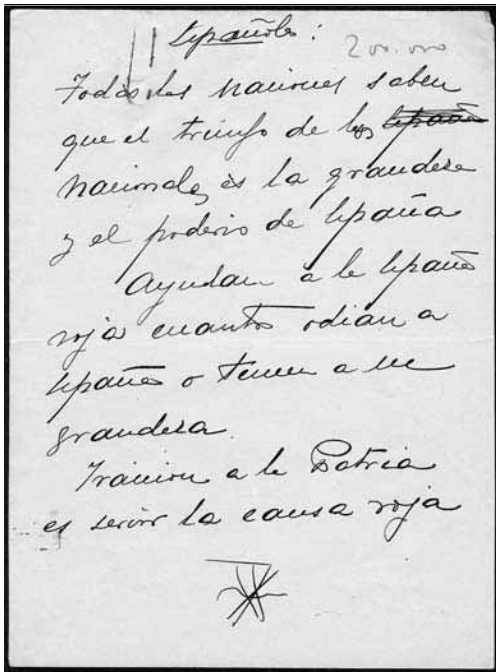 Españoles:
200.000
Todas las naciones saben
que el triunfo de los España
nacionales es la grandeza
y el poderio de España
Ayudan a la España
roja cuantos odian a
España o temen a su
grandeza.
Traicion a la Patria
es servir la causa roja